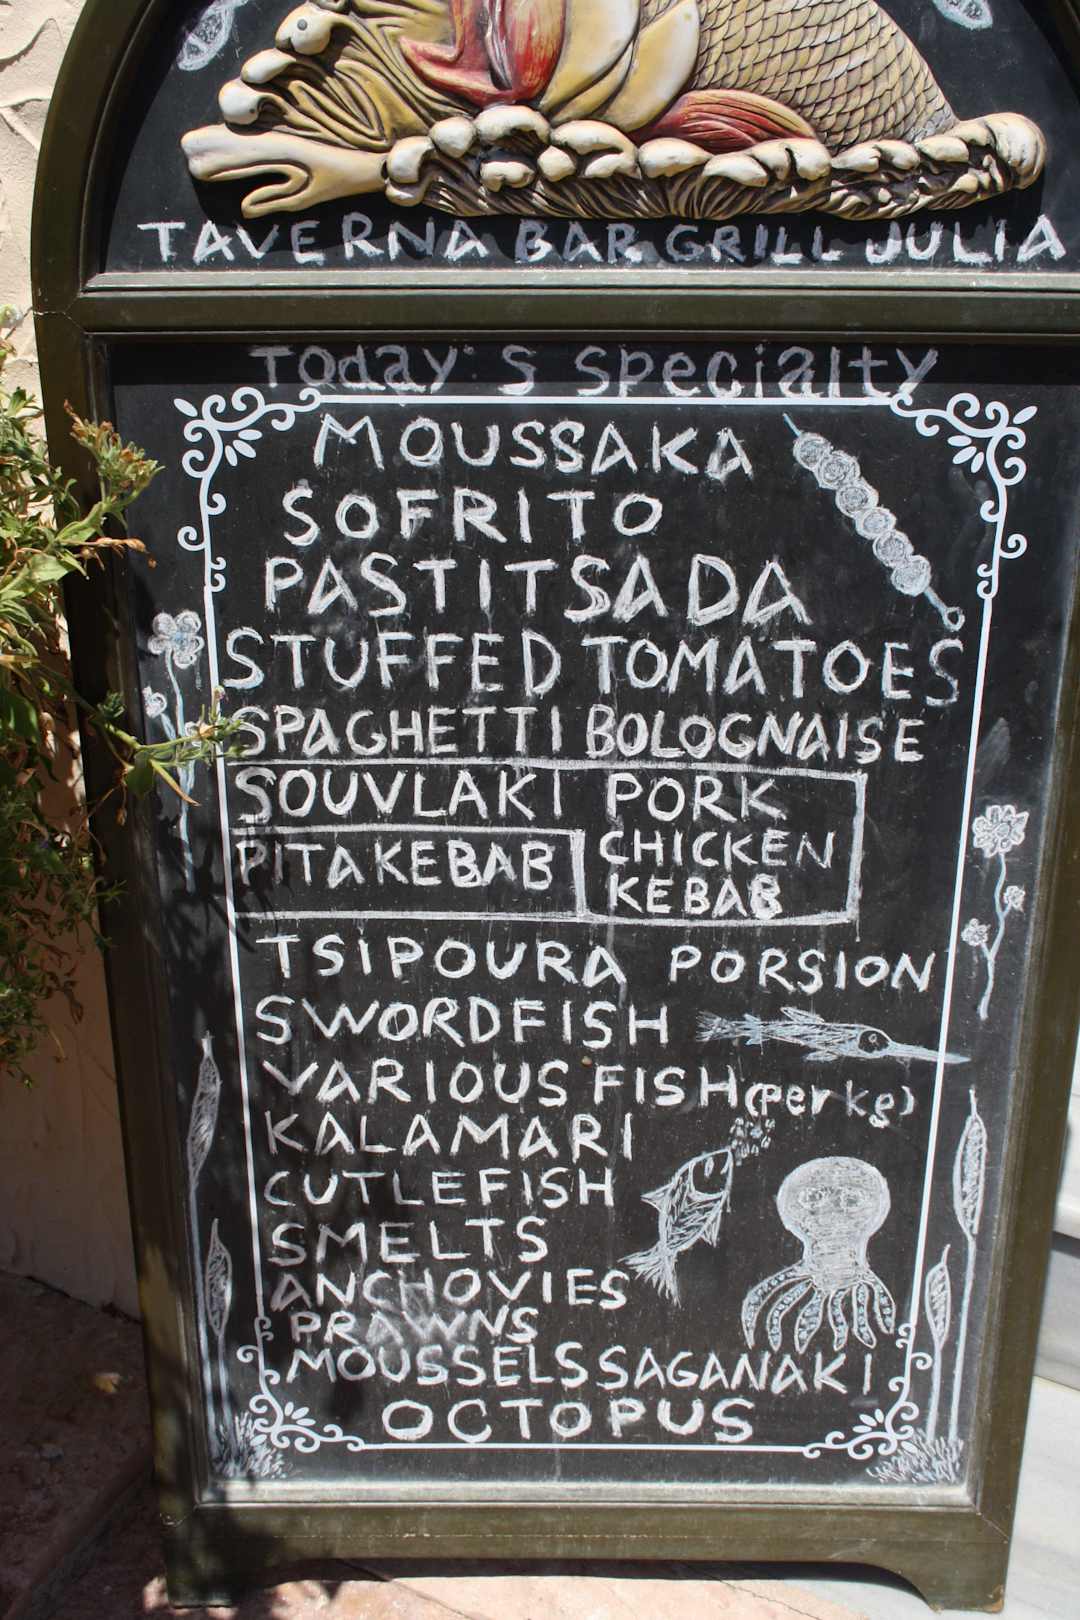 TAVERNA BAR GRILL JULIA
Today's specialty
MOUSSAKA
SOFRITO
PASTITSADA
STUFFED TOMATOES
SPAGHETTI BOLOGNAISE
SOUVLAKI PORK
PITA KEBAB CHICKEN
KEBAB
TSIPOURA PORSION
SWORDFISH
VARIOUS FISH (per kg)
KALAMARI
CUTLEFISH
SMELTS
ANCHOVIES
PRAWNS
MOUSSELS SAGANAKI
OCTOPUS